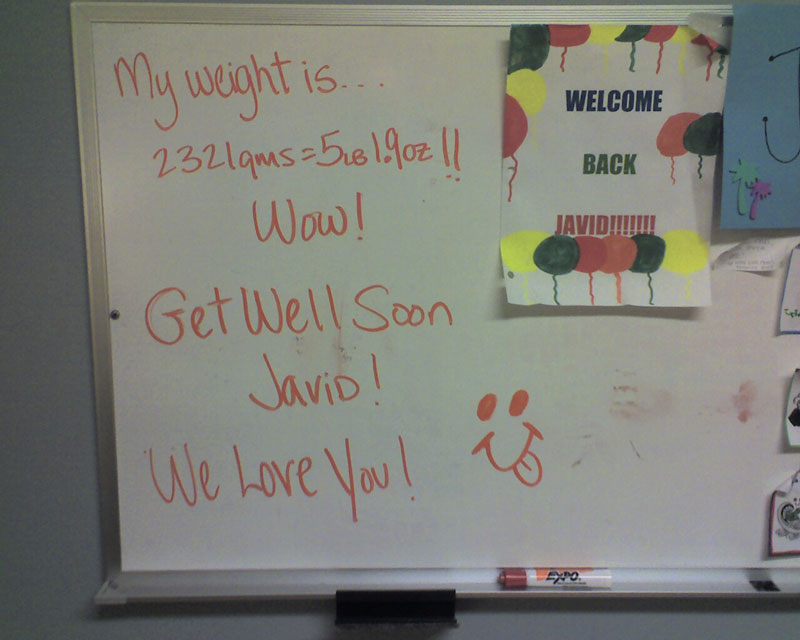 My weight is...
2321gms=5LB 1.9oz!!
Wow!
Get Well Soon
Javid!
We Love You!
WELCOME
BACK
JAVID!!!!!!!
J
EXPO